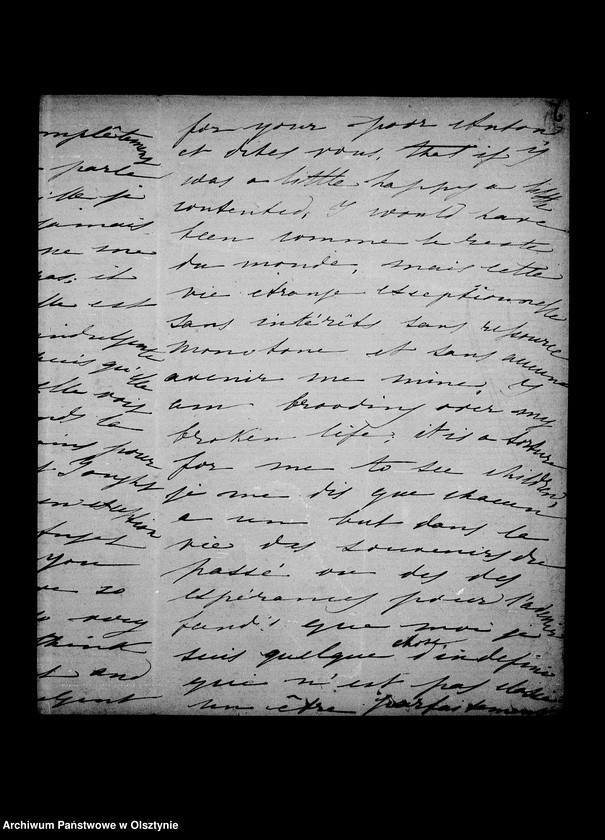 mplètement
parle
lle je
jamais
ne me
pas, il
lle est
indulgente
puis qu'elle
elle voit
pour
I ought
in deception
forget
you
so
very
think
t and
gent
for your poor Anton
et dites vous, that if I
was a little happy a little
contented, I would have
been comme le reste
du monde, mais cette
vie étrange exceptionnelle
sans intérêts sans ressource
monotone et sans aucun
avenir me mine, I
am brooding over my
broken life; it is a torture
for me to see children,
je me dis que chacun
a un but dans la
vie des souvenirs du
passé ou des des
espérances pour l'avenir
tandis que moi je
suis quelque chose d'indéfini
qui n'est pas
un être parfaitement